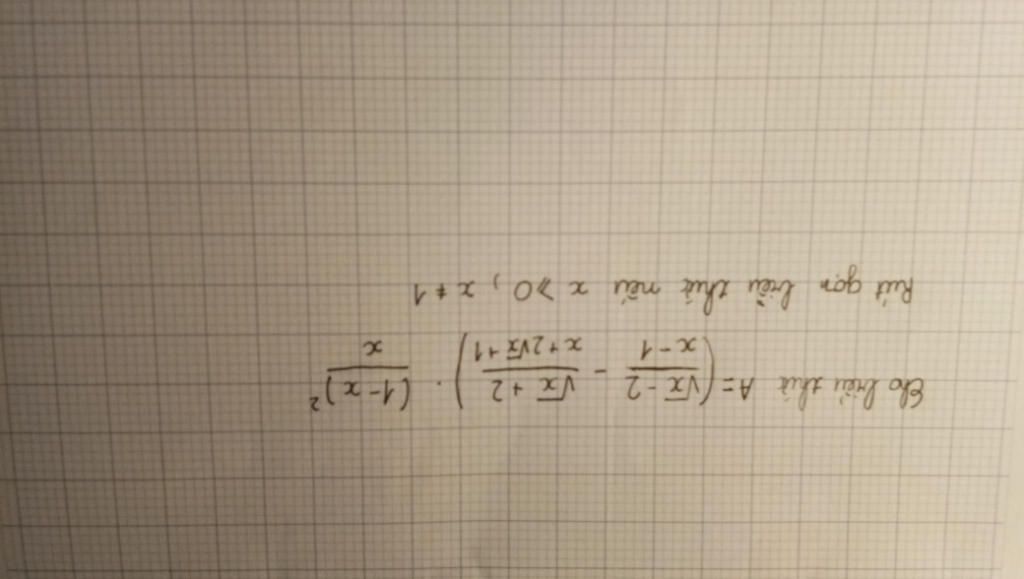 Cho biểu thức A = ( (√x - 2)/(x - 1) - (√x + 2)/(x + 2√x + 1) ) . (1 - x)²/x
Rút gọn biểu thức nếu x ⩾ 0, x ≠ 1